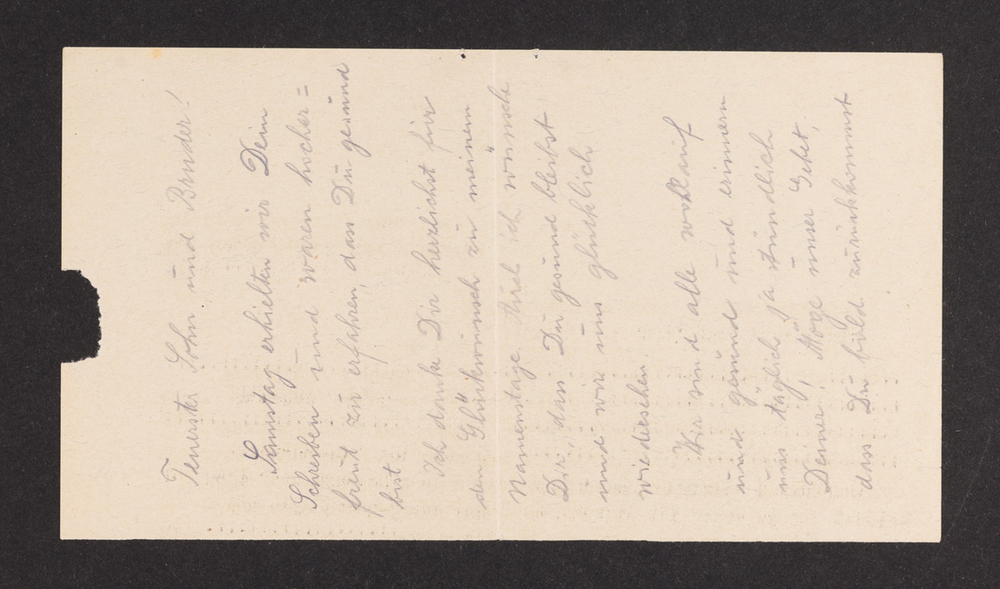 Teuerster Sohn und Bruder!
Samstag erhielten wir Dein
Schreiben und waren hocher=
freut zu erfahren, dass Du gesund
bist.
Ich danke Dir herzlichst für
den Glückwunsch zu meinem
Namenstage. Auch ich wünsche
Dir, dass Du gesund bleibst
und wir uns glücklich
wiedersehen.
Wir sind alle wohlauf
und gesund und erinnern
uns täglich ja stündlich
Deiner, Möge unser Gebet,
dass Du bald zurückkommst